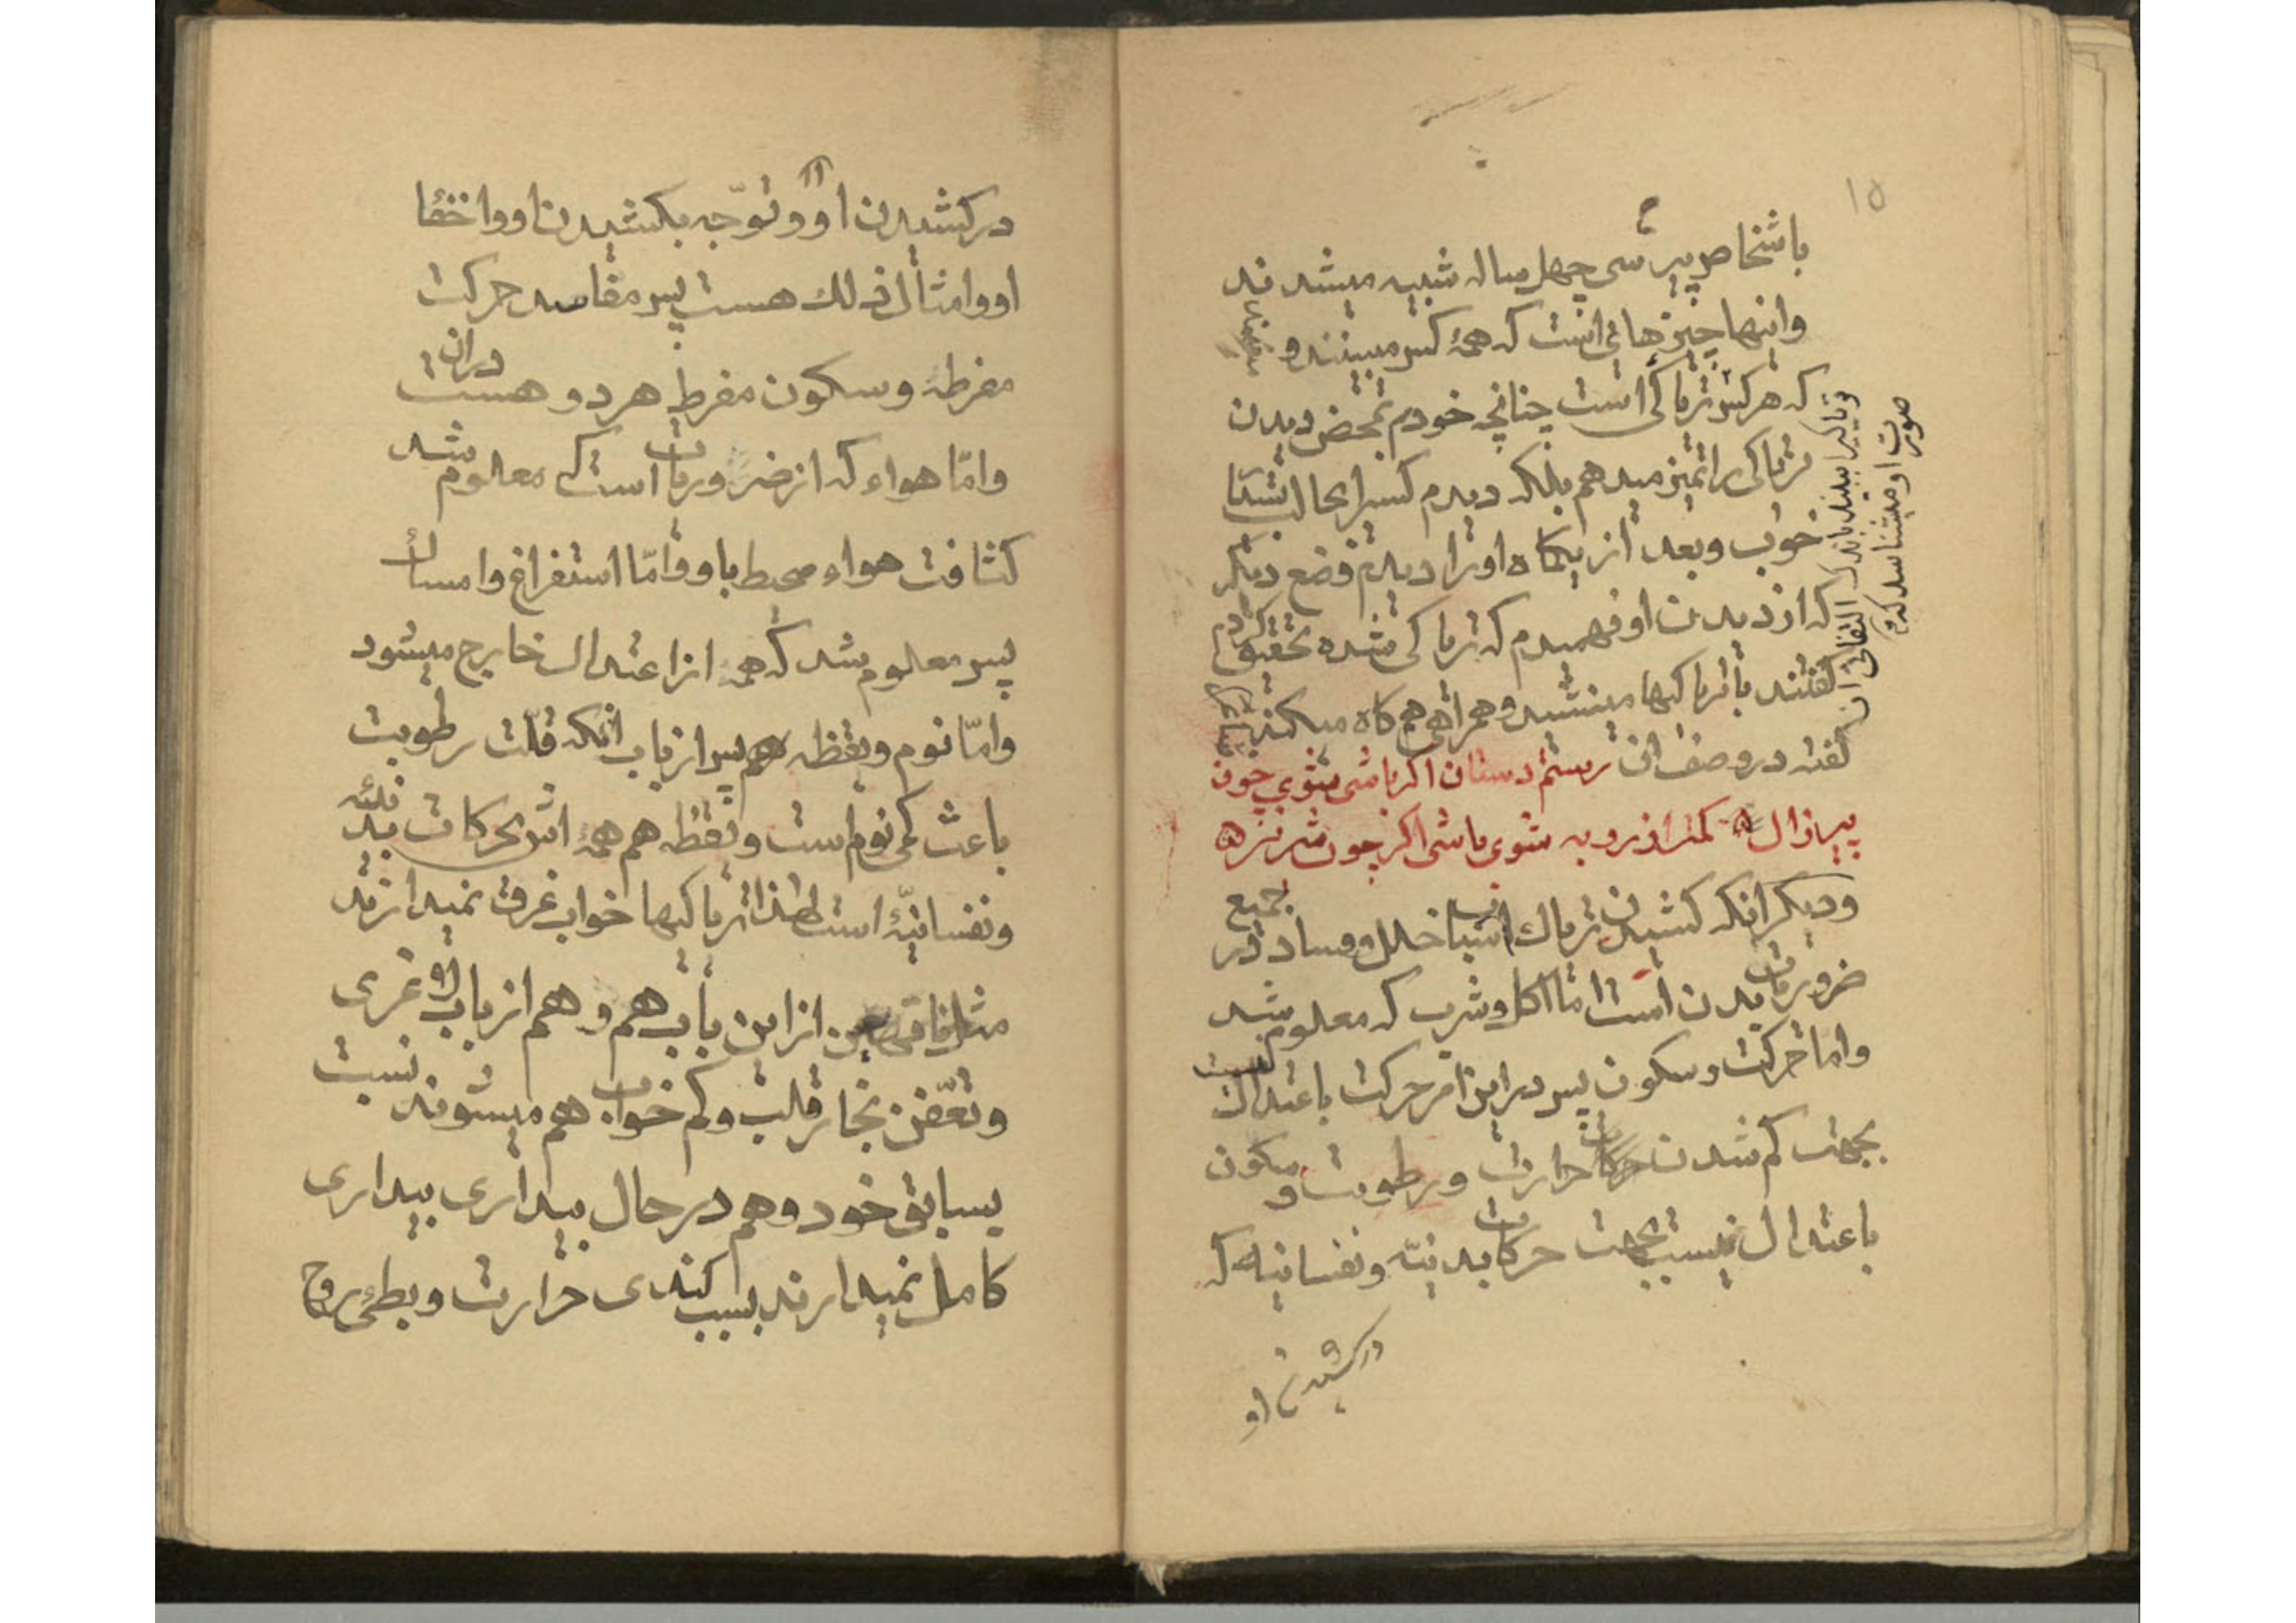 ۱۵
باشخاص پیر سی چهل ساله شبیه میشدند
واینها چیزهائی است که همهٔ کس میبینند و
که هر کس تریاکی است چنانچه خودم بمحض دیدن
تریاکی را تمیز میدهم بلکه دیدم کسیرا بحالت
خوب و بعد از یکماه اورا دیدم وضع دیگر
که از دیدن او فهمیدم که تریاکی شده تحقیق کردم
گفتند با تریاکیها مینشیند و همراهی هم گاه میکند
گفته در وصف ان رستم دستان اگر باشی شوی چون
پیر زال کمتر از روبه شوی باشی اگر چون شر نره
ودیگر انکه کشیدن تریاک اسباب خلل و فساد در جمیع
ضروریات بدن است اما اکل و شرب که معلوم شد
واما حرکت وسکون پس در این امر حرکت باعتدال نیست
بجهت کم شدن حرارت و رطوبت و سکون
باعتدال نیست بجهت حرکات بدنیّه ونفسانیه که
درکشیدن او
و تریاکیرا ببیند باندک التفاتی از
صورت او میشناسد که
درکشیدن او و توجّه بکشیدن او واخفا
او وامثال ذلک هست پس مفاسد حرکت
مفرطه وسکون مفرط هر دو در ان هست
وامّا هواء که از ضروریات است که معلوم شد
کثافت هواء محیط باو وامّا استفراغ وامساک
پس معلوم شد که همه از اعتدال خارج میشود
وامّا نوم ویقظه هم پس از باب انکه قلّت رطوبت
باعث کمی نوم است ویقظه هم همهٔ اش بحرکات بدنیّه
ونفسانیّهٔ است لهذا تریاکیها خواب غرق نمیدارند
از این باب هم و هم از باب
وتعفّن بخار قلب و کم خواب هم میشوند نسبت
بسابق خود وهم در حال بیداری بیداری
کامل نمیدارند بسبب کندی حرارت و بطئی روح